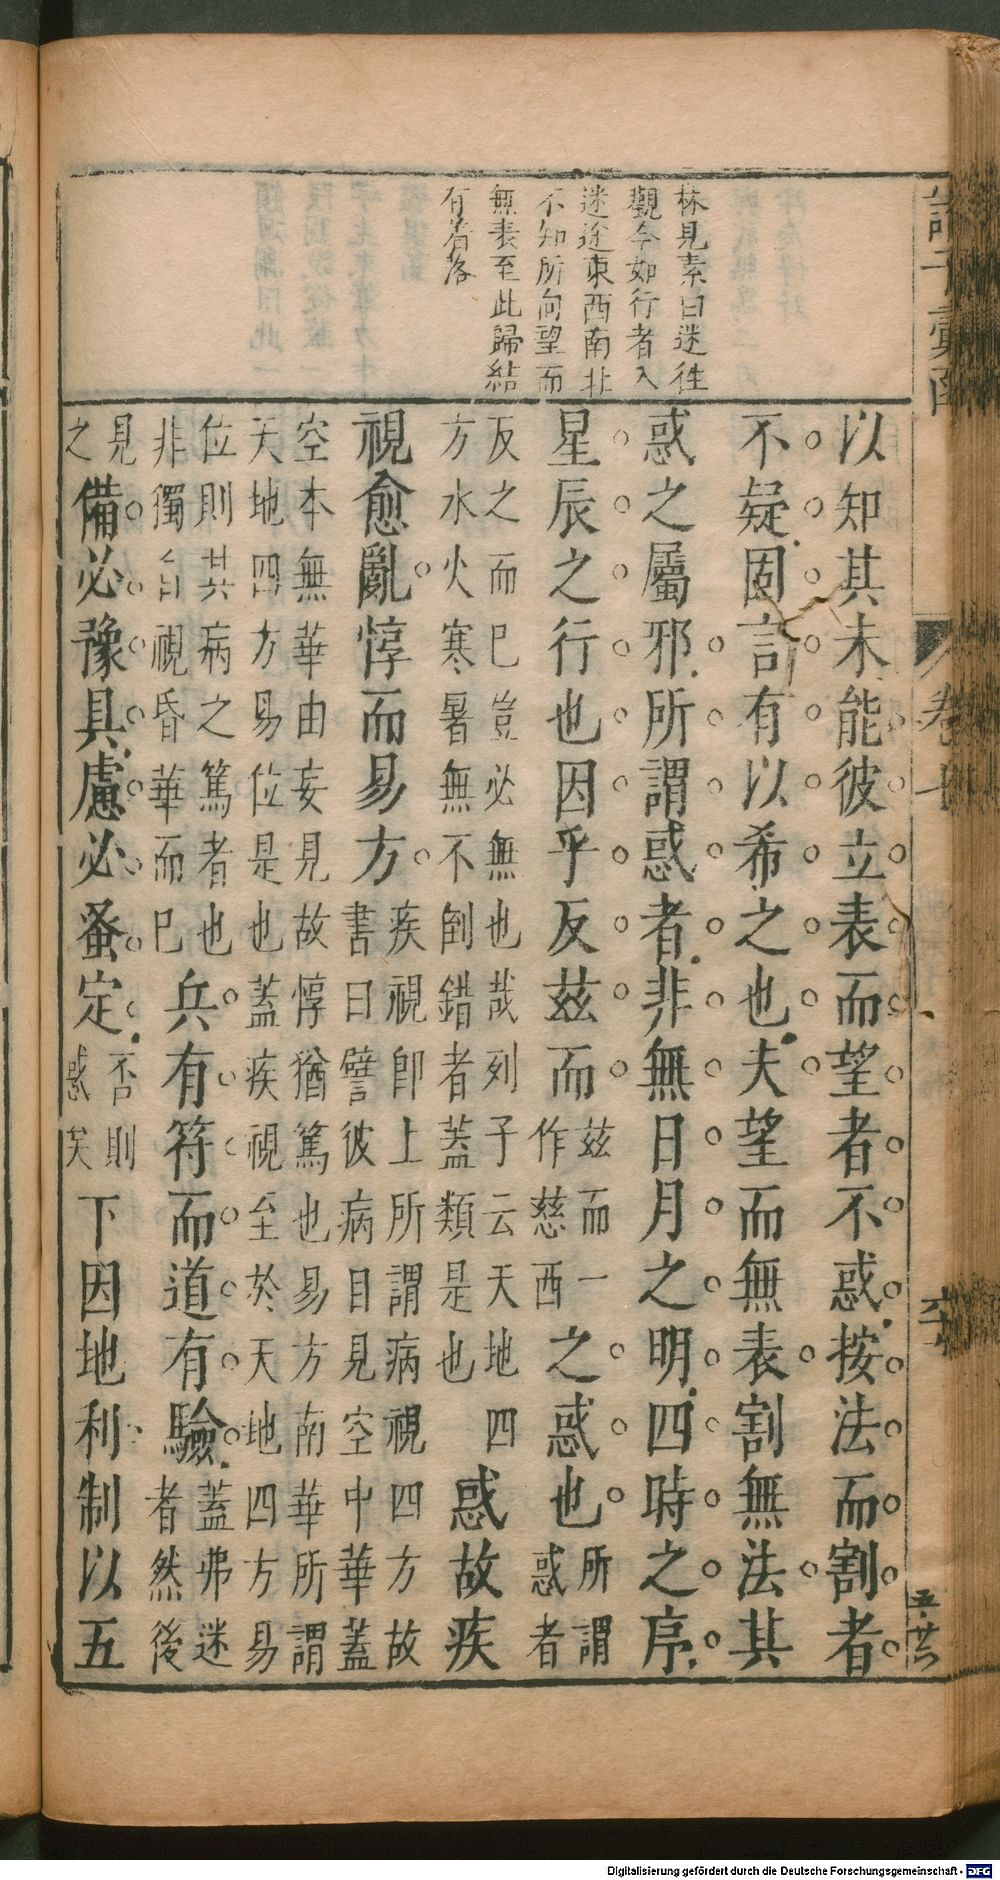 諸子彙函
卷十
林見素曰迷往
觀今如行者入
迷途東西南北
不知所向望而
無表至此歸結
有着落
以知其未能彼立表而望者不惑按法而割者
不疑固言有以希之也夫望而無表割無法其
惑之屬邪所謂惑者非無日月之明四時之序
星辰之行也因乎反茲而茲而一作慈西之惑也所謂惑者
反之而已豈必無也哉列子云天地四方水火寒暑無不倒錯者蓋類是也惑故疾
視愈亂惇而易方疾視即上所謂病視四方故書曰譬彼病目見空中華蓋
空本無華由妄見故惇猶篤也易方南華所謂天地四方易位是也蓋疾視至於天地四方易
位則其病之篤者也非獨目視昏華而已兵有符而道有驗蓋弗迷者然後
見之備必豫具慮必蚤定否則惑矣下因地利制以五
Digitalisierung gefördert durch die Deutsche Forschungsgemeinschaft - DFG